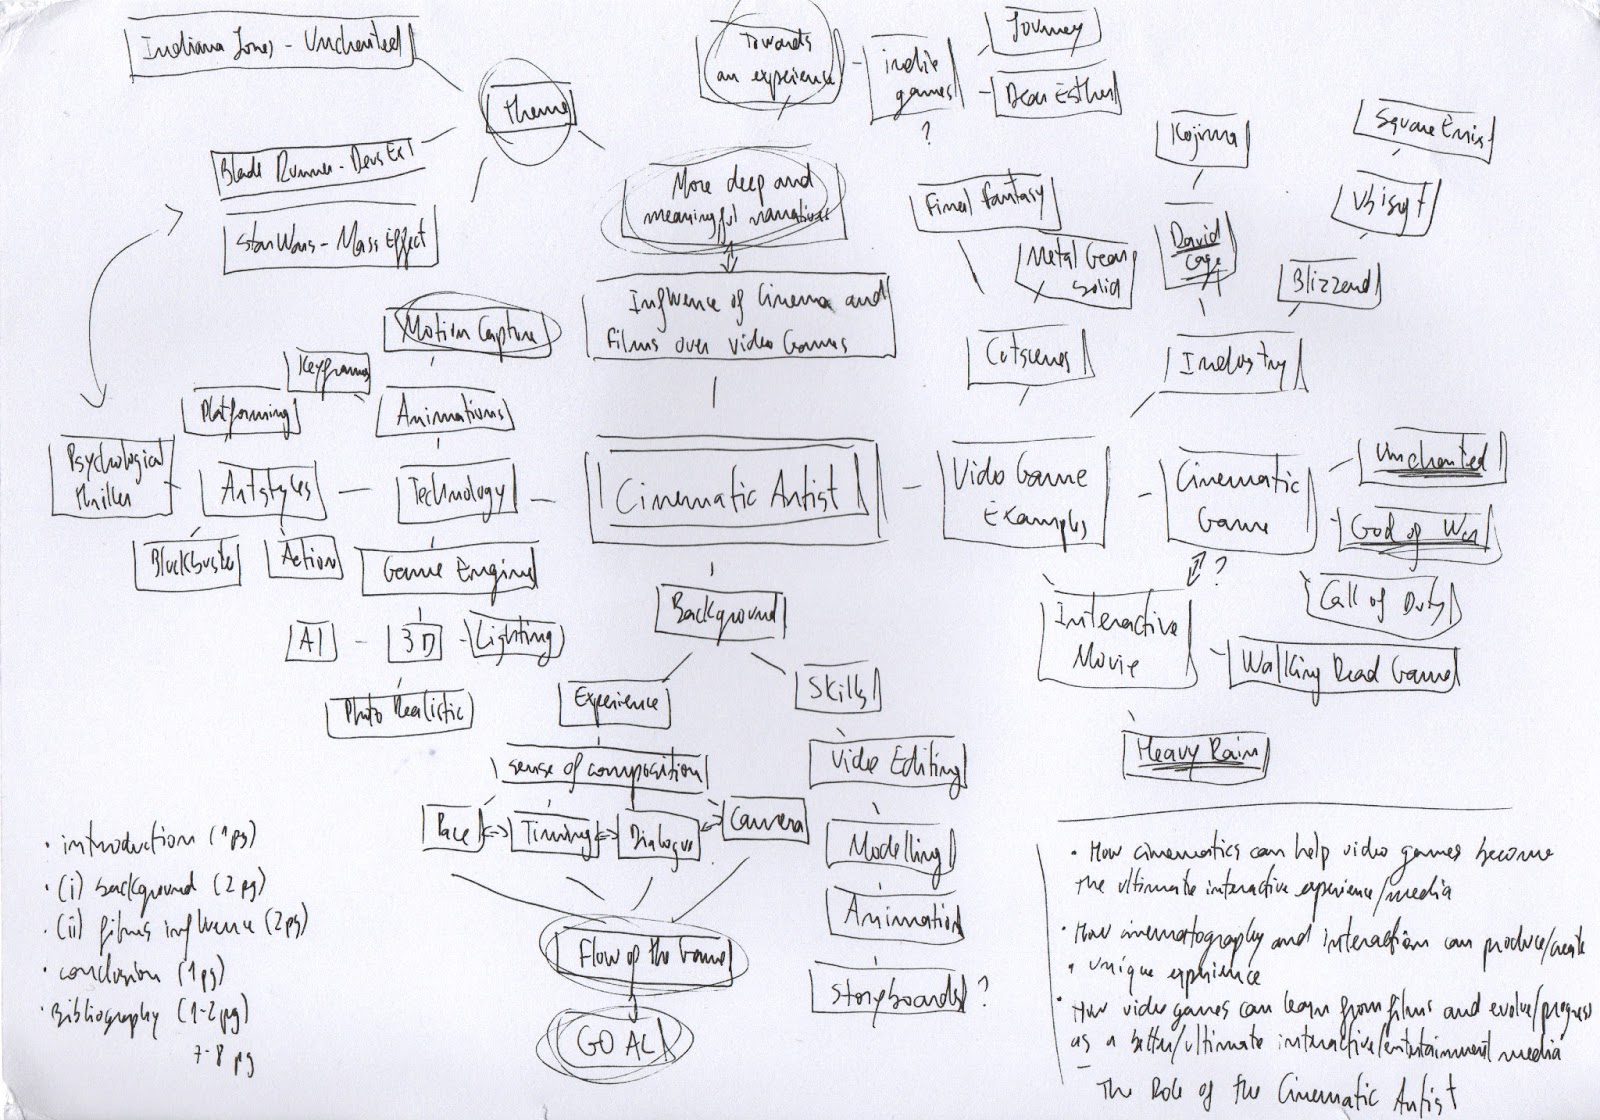 Indiana Jones - Uncharted
Theme
Blade Runner - Deus Ex
Star Wars - Mass Effect
Towards
an experience
indie
games
?
Journey
Dear Esther
More deep and
meaningful narratives
Influence of Cinema and
films over video Games
Final Fantasy
Metal Gear
Solid
Cutscenes
Kojima
David
Cage
Industry
Square Enix
Ubisoft
Blizzard
Motion Capture
Keyframes
Animations
Platforming
Psychological
thriller
Artstyles
Technology
Blockbuster
Action
Game Engine
AI
3D
Lighting
Photo Realistic
Cinematic Artist
Video Game
Examples
Cinematic
Game
Uncharted
God of War
Call of Duty
?
Interactive
Movie
Walking Dead Game
Heavy Rain
Background
Experience
Skills
sense of composition
Pace
Timing
Dialogue
Camera
Flow of the Game
GOAL
Video Editing
Modelling
Animation
Storyboards ?
· introduction (1pg)
· (i) background (2pg)
· (ii) films influence (2pg)
· conclusion (1pg)
· Bibliography (1-2pg)
7-8 pg
· How cinematics can help video games become
the ultimate interactive experience/media
· How cinematography and interaction can produce/create
· unique experience
· How video games can learn from films and evolve/progress
as a better/ultimate interactive/entertainment media
- The Role of the Cinematic Artist